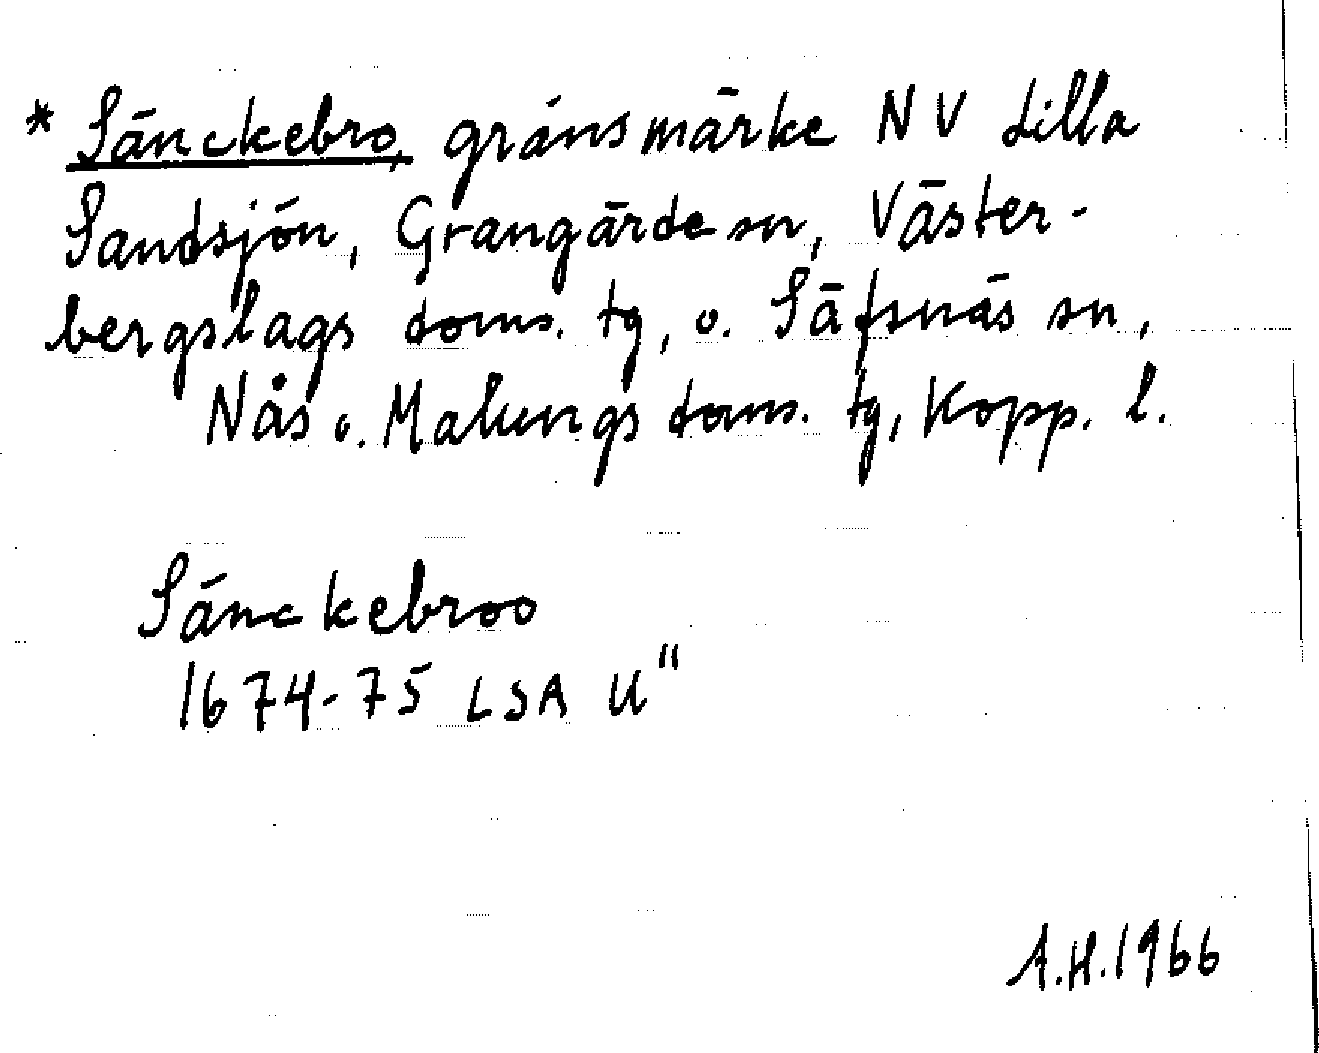 * Sänckebro, gränsmärke NV Lilla
Sandsjön, Grangärde sn, Väster-
bergslags doms. tg, o. Säfsnäs sn,
Nås o. Malungs doms. tg, Kopp. l.
Sänckebroo
1674-75 LSA U"
A.H. 1966